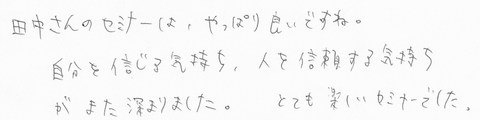 田中さんのセミナーは、やっぱり良いですね。
自分を信じる気持ち、人を信頼する気持ち
がまた深まりました。 とても楽しいセミナーでした。